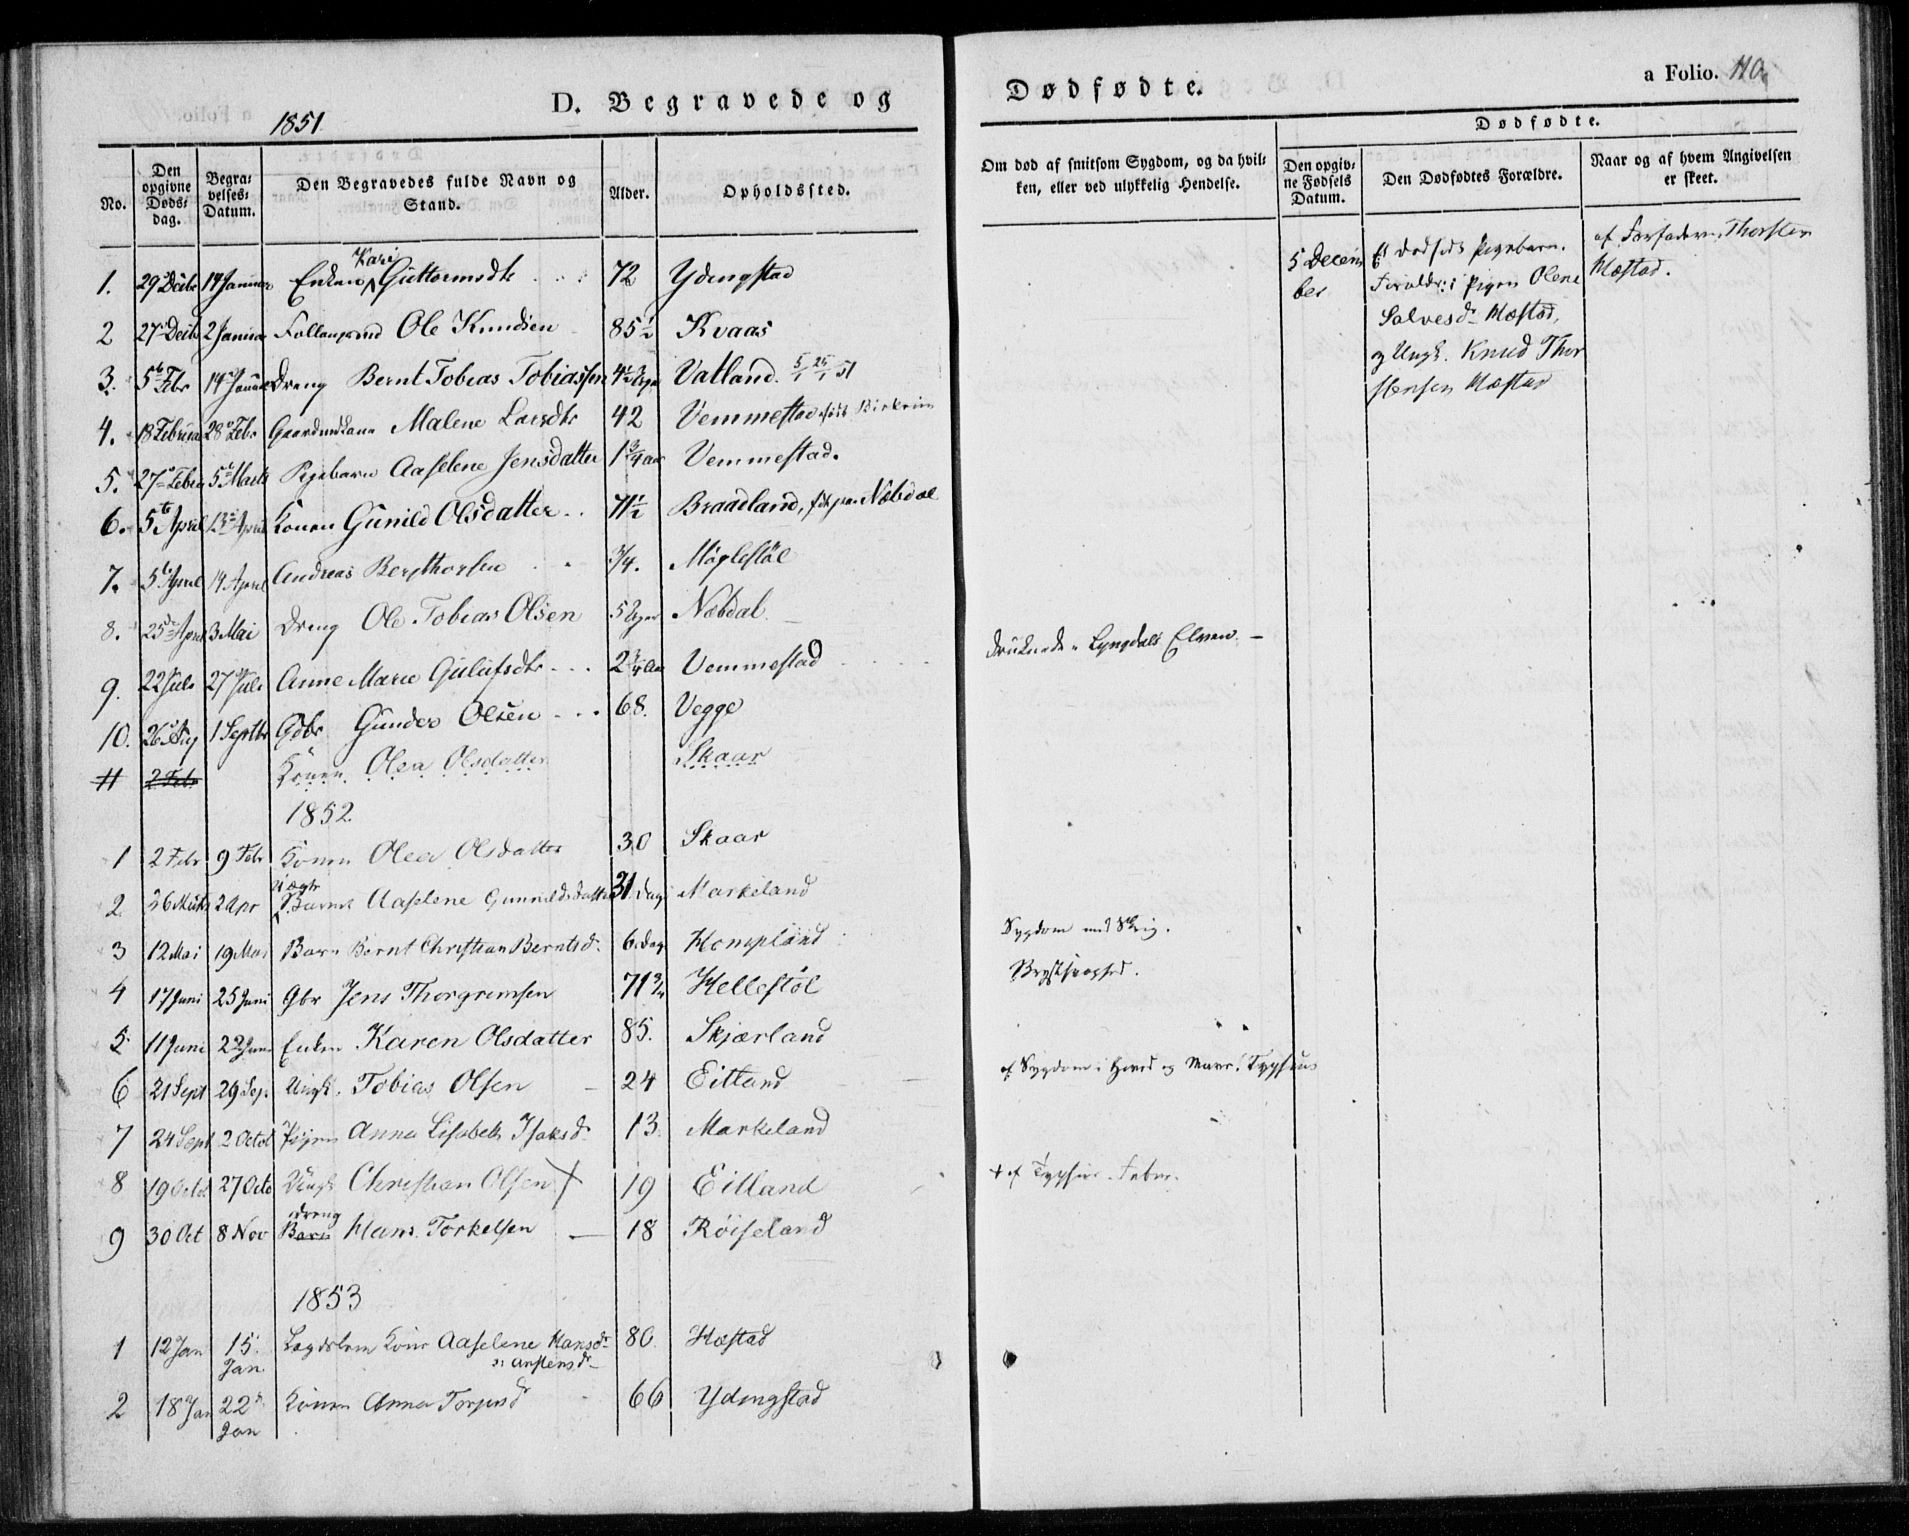 D. Begravede og
1851.
No. | Den opgivne Døds-dag. | Begra-velses-Datum. | Den Begravedes fulde Navn og Stand. | Alder. | Opholdssted.
1. 29 Decbr 14 Januar Enken Kari Guttormsdtr 72 Ydengstad
2 27 Decbr 2 Januar Ole Knudsen 85½ Kvaas
3. 5te Febr 14 Januar Dreng Bernt Tobias Tobiassen Vatland. 5/1 25/1 51
4. 18 Februar 28 Febr Malene Larsdtr 42 Vemmestad, født Birkrim
5. 27 Febru 5te Marts Pigebarn Aaselene Jensdatter 1¾ aar Vemmestad.
6. 5te April 13de April Konen Gunild Olsdatter 71½ Braadland, Nebdal
7. 5te April 14 April Andreas Bergthorsen ¾. Møglestøl
8. 25de April 3 Mai Dreng Ole Tobias Olsen 5 Nebdal.
9. 22 Juli 27 Juli Anne Marie Gulufsdtr 2¾ Aar Vemmestad
10. 26 Aug 1 Septbr Gdbr Gunder Olsen 68. Vegge
11 2 Febr Konen Olea Olsdatter Skaar
1852.
1 2 Febr 9 Febr Konen Olea Olsdatter 30 Skaar
2 26 Marts 2 Apr Uægte Barnet Aaselene Gunnildsdatter 31 Dag Markeland
3 12 Mai 19 Mai Barn Bernt Christian Berntsd. 6. dag Kompland
4 17 Juni 25 Juni Gbr Jens Thorgrimsen 71¾ Hellestøl
5 11 Juni 22 Juni Enken Karen Olsdatter 85. Skjærland
6 21 Sept 29 Sep. Ungk. Tobias Olsen 24 Eitland
7 24 Sept 2 Octob Pigen Anna Lisabeth Isaksd. 13. Markeland
8 19 Octob 27 Octo Ungk Christian Olsen + 19 Eitland
9 30 Oct 8 Nov Barn dreng Hans Torkelsen 18 Røiseland
1853
1 12 Jan 15. Jan Lægdslem Kone Aaselene Hansd. 80 Hæstad
ɔ: Arstensd.
2 18 Jan 22de Jan Konen Anna Torjusd 66 Ydingstad
Dødfødte.
a Folio. 110.
Om død af smitsom Sygdom, og da hvil-ken, eller ved ulykkelig Hendelse.
Dødfødte.
Den opgiv-ne Fødsels Datum. | Den Dødfødtes Forældre. | Naar og af hvem Angivelsen er skeet.
5 Decem-ber
Et dødfødt Pigebarn.
Forældre: Pigen Olene
Salvesd. Hæstad,
og Ungk. Knud Thor
stensen Hæstad
af Farfaderen Thorsten
Hæstad.
druknede i Lyngdals Elven.
Sygdom med Skrig.
Brystsvaghed.
af Sygdom i Hoved og Mave. Typhus
+ af Typhus Feber.